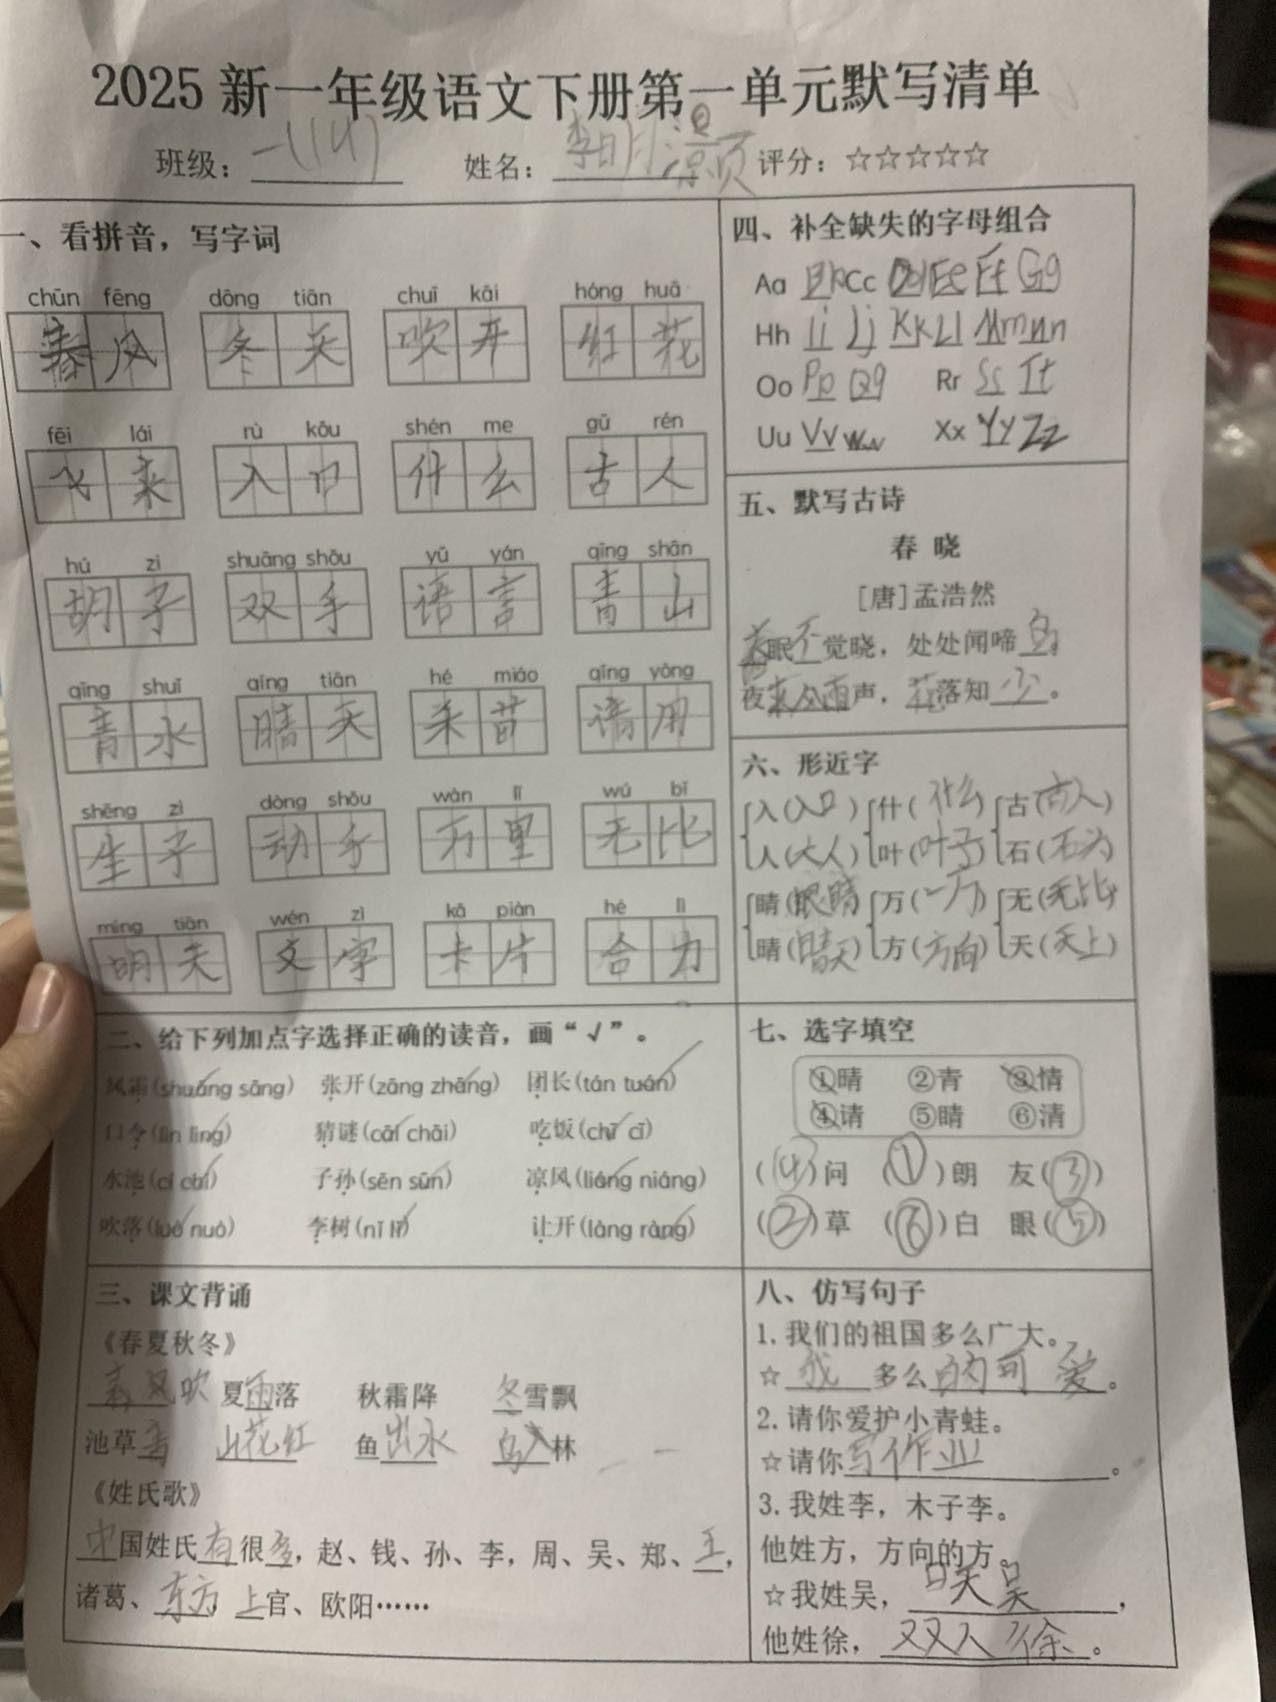 2025新一年级语文下册第一单元默写清单
班级：一(14) 姓名：李明灏 评分：☆☆☆☆☆
一、看拼音，写字词
chūn fēng dōng tiān chuī kāi hóng huā
春风 冬天 吹开 红花
fēi lái rù kǒu shén me gǔ rén
飞来 入口 什么 古人
hú zi shuāng shǒu yǔ yán qīng shān
胡子 双手 语言 青山
qīng shuǐ qíng tiān hé miáo qǐng yòng
青水 晴天 禾苗 请用
shēng zì dòng shǒu wàn lǐ wú bǐ
生字 动手 万里 无比
míng tiān wén zì kǎ piàn hé lì
明天 文字 卡片 合力
二、给下列加点字选择正确的读音，画“√”。
风霜(shuāng sāng) 张开(zāng zhāng) 团长(tán tuán)
口令(lìn lìng) 猜谜(cāi chāi) 吃饭(chī cī)
水池(cí chí) 子孙(sēn sūn) 凉风(liáng niáng)
吹落(luò nuò) 李树(nǐ lǐ) 让开(làng ràng)
三、课文背诵
《春夏秋冬》
春风吹 夏雨落 秋霜降 冬雪飘
池草青 山花红 鱼出水 鸟入林
《姓氏歌》
中国姓氏有很多，赵、钱、孙、李，周、吴、郑、王，
诸葛、东方 上官、欧阳……
四、补全缺失的字母组合
Aa Bb Cc Dd Ee Ff Gg
Hh Ii Jj Kk Ll Mm Nn
Oo Pp Qq Rr Ss Tt
Uu Vv Ww Xx Yy Zz
五、默写古诗
春 晓
[唐]孟浩然
春眠不觉晓，处处闻啼鸟
夜来风雨声，花落知少。
六、形近字
入(入口) 什(什么) 古(古人)
人(大人) 叶(叶子) 石(石头)
睛(眼睛) 万(一万) 无(无比)
晴(晴天) 方(方向) 天(天上)
七、选字填空
①晴 ②青 ③情
④请 ⑤睛 ⑥清
(4)问 (①)朗 友(③)
(②)草 (⑥)白 眼(⑤)
八、仿写句子
1.我们的祖国多么广大。
☆我多么的可爱。
2.请你爱护小青蛙。
☆请你写作业。
3.我姓李，木子李。
他姓方，方向的方。
☆我姓吴，口天吴，
他姓徐，双人徐。